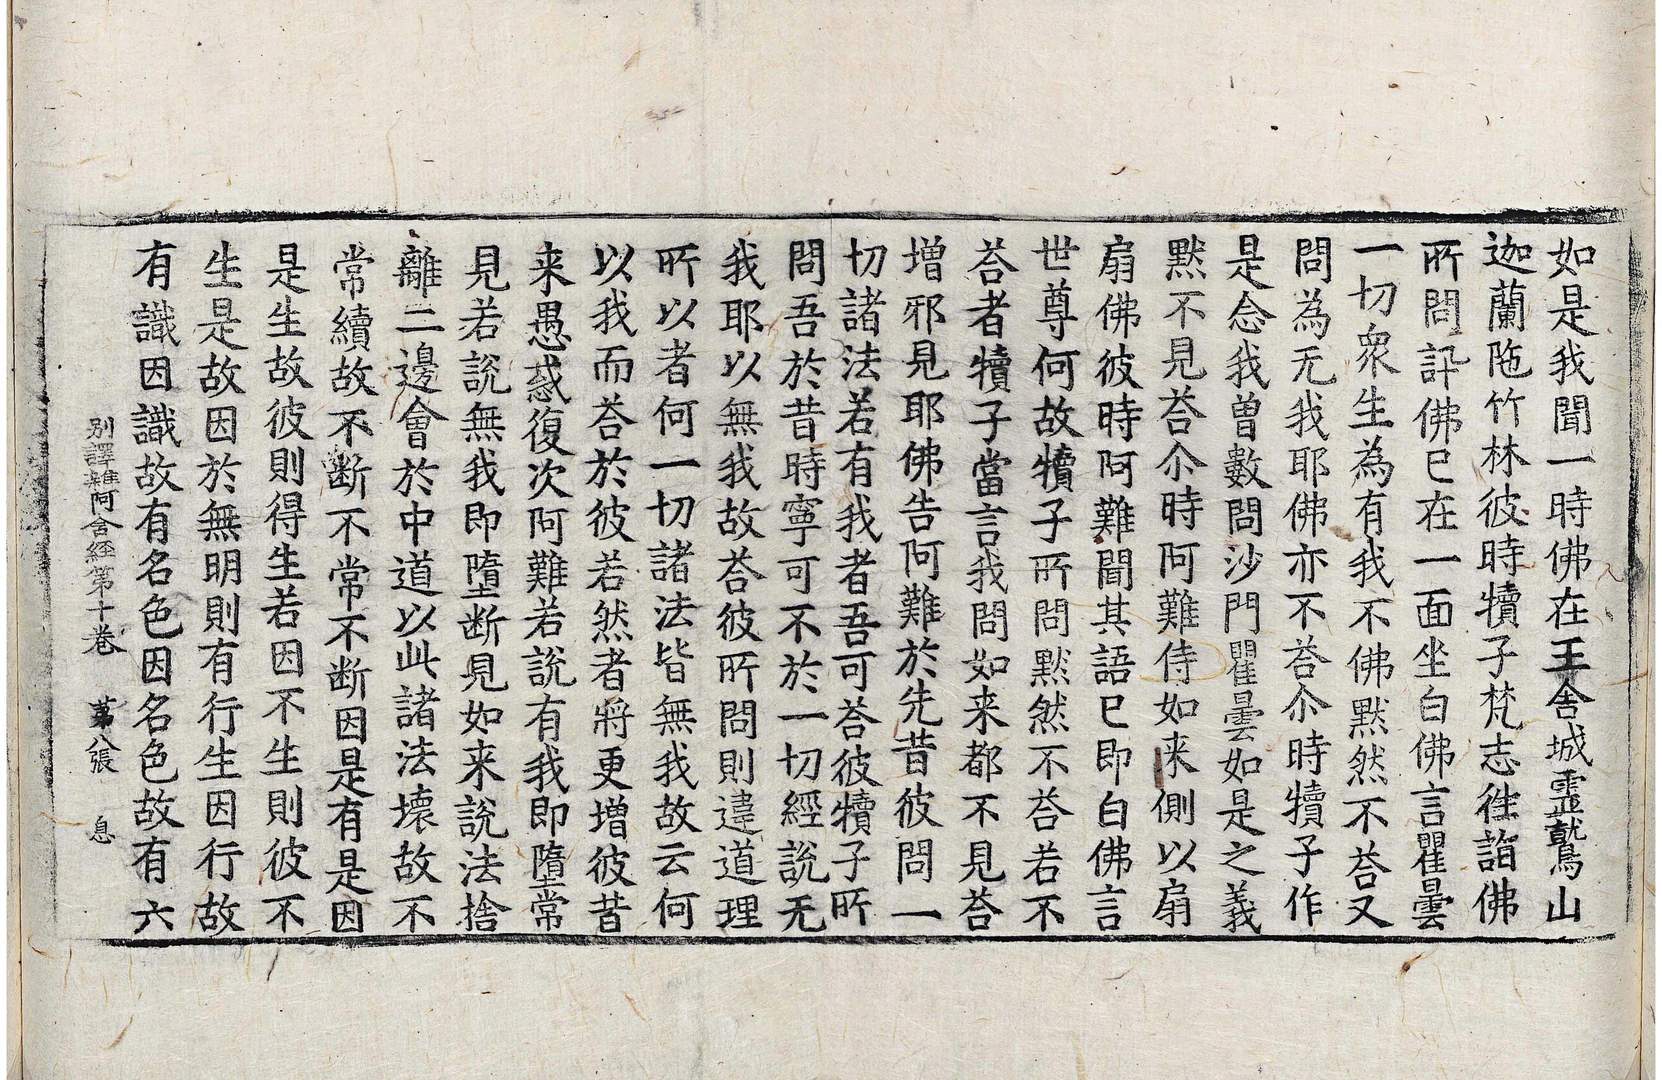 如是我聞一時佛在王舍城靈鷲山
迦蘭陁竹林彼時犢子梵志徃詣佛
所問訊佛已在一面坐白佛言瞿曇
一切衆生為有我不佛黙然不荅又
問為无我耶佛亦不荅尒時犢子作
是念我曾數問沙門瞿曇如是之義
黙不見荅尒時阿難侍如来側以扇
扇佛彼時阿難聞其語已即白佛言
世尊何故犢子所問黙然不荅若不
荅者犢子當言我問如来都不見荅
增邪見耶佛告阿難於先昔彼問一
切諸法若有我者吾可荅彼犢子所
問吾於昔時寧可不於一切經說无
我耶以無我故荅彼所問則違道理
所以者何一切諸法皆無我故云何
以我而荅於彼若然者將更增彼昔
来愚惑復次阿難若說有我即墮常
見若說無我即墮断見如来說法捨
離二邊會於中道以此諸法壞故不
常續故不断不常不断因是有是因
是生故彼則得生若因不生則彼不
生是故因於無明則有行生因行故
有識因識故有名色因名色故有六
別譯雜阿含經第十卷 苐八張 息